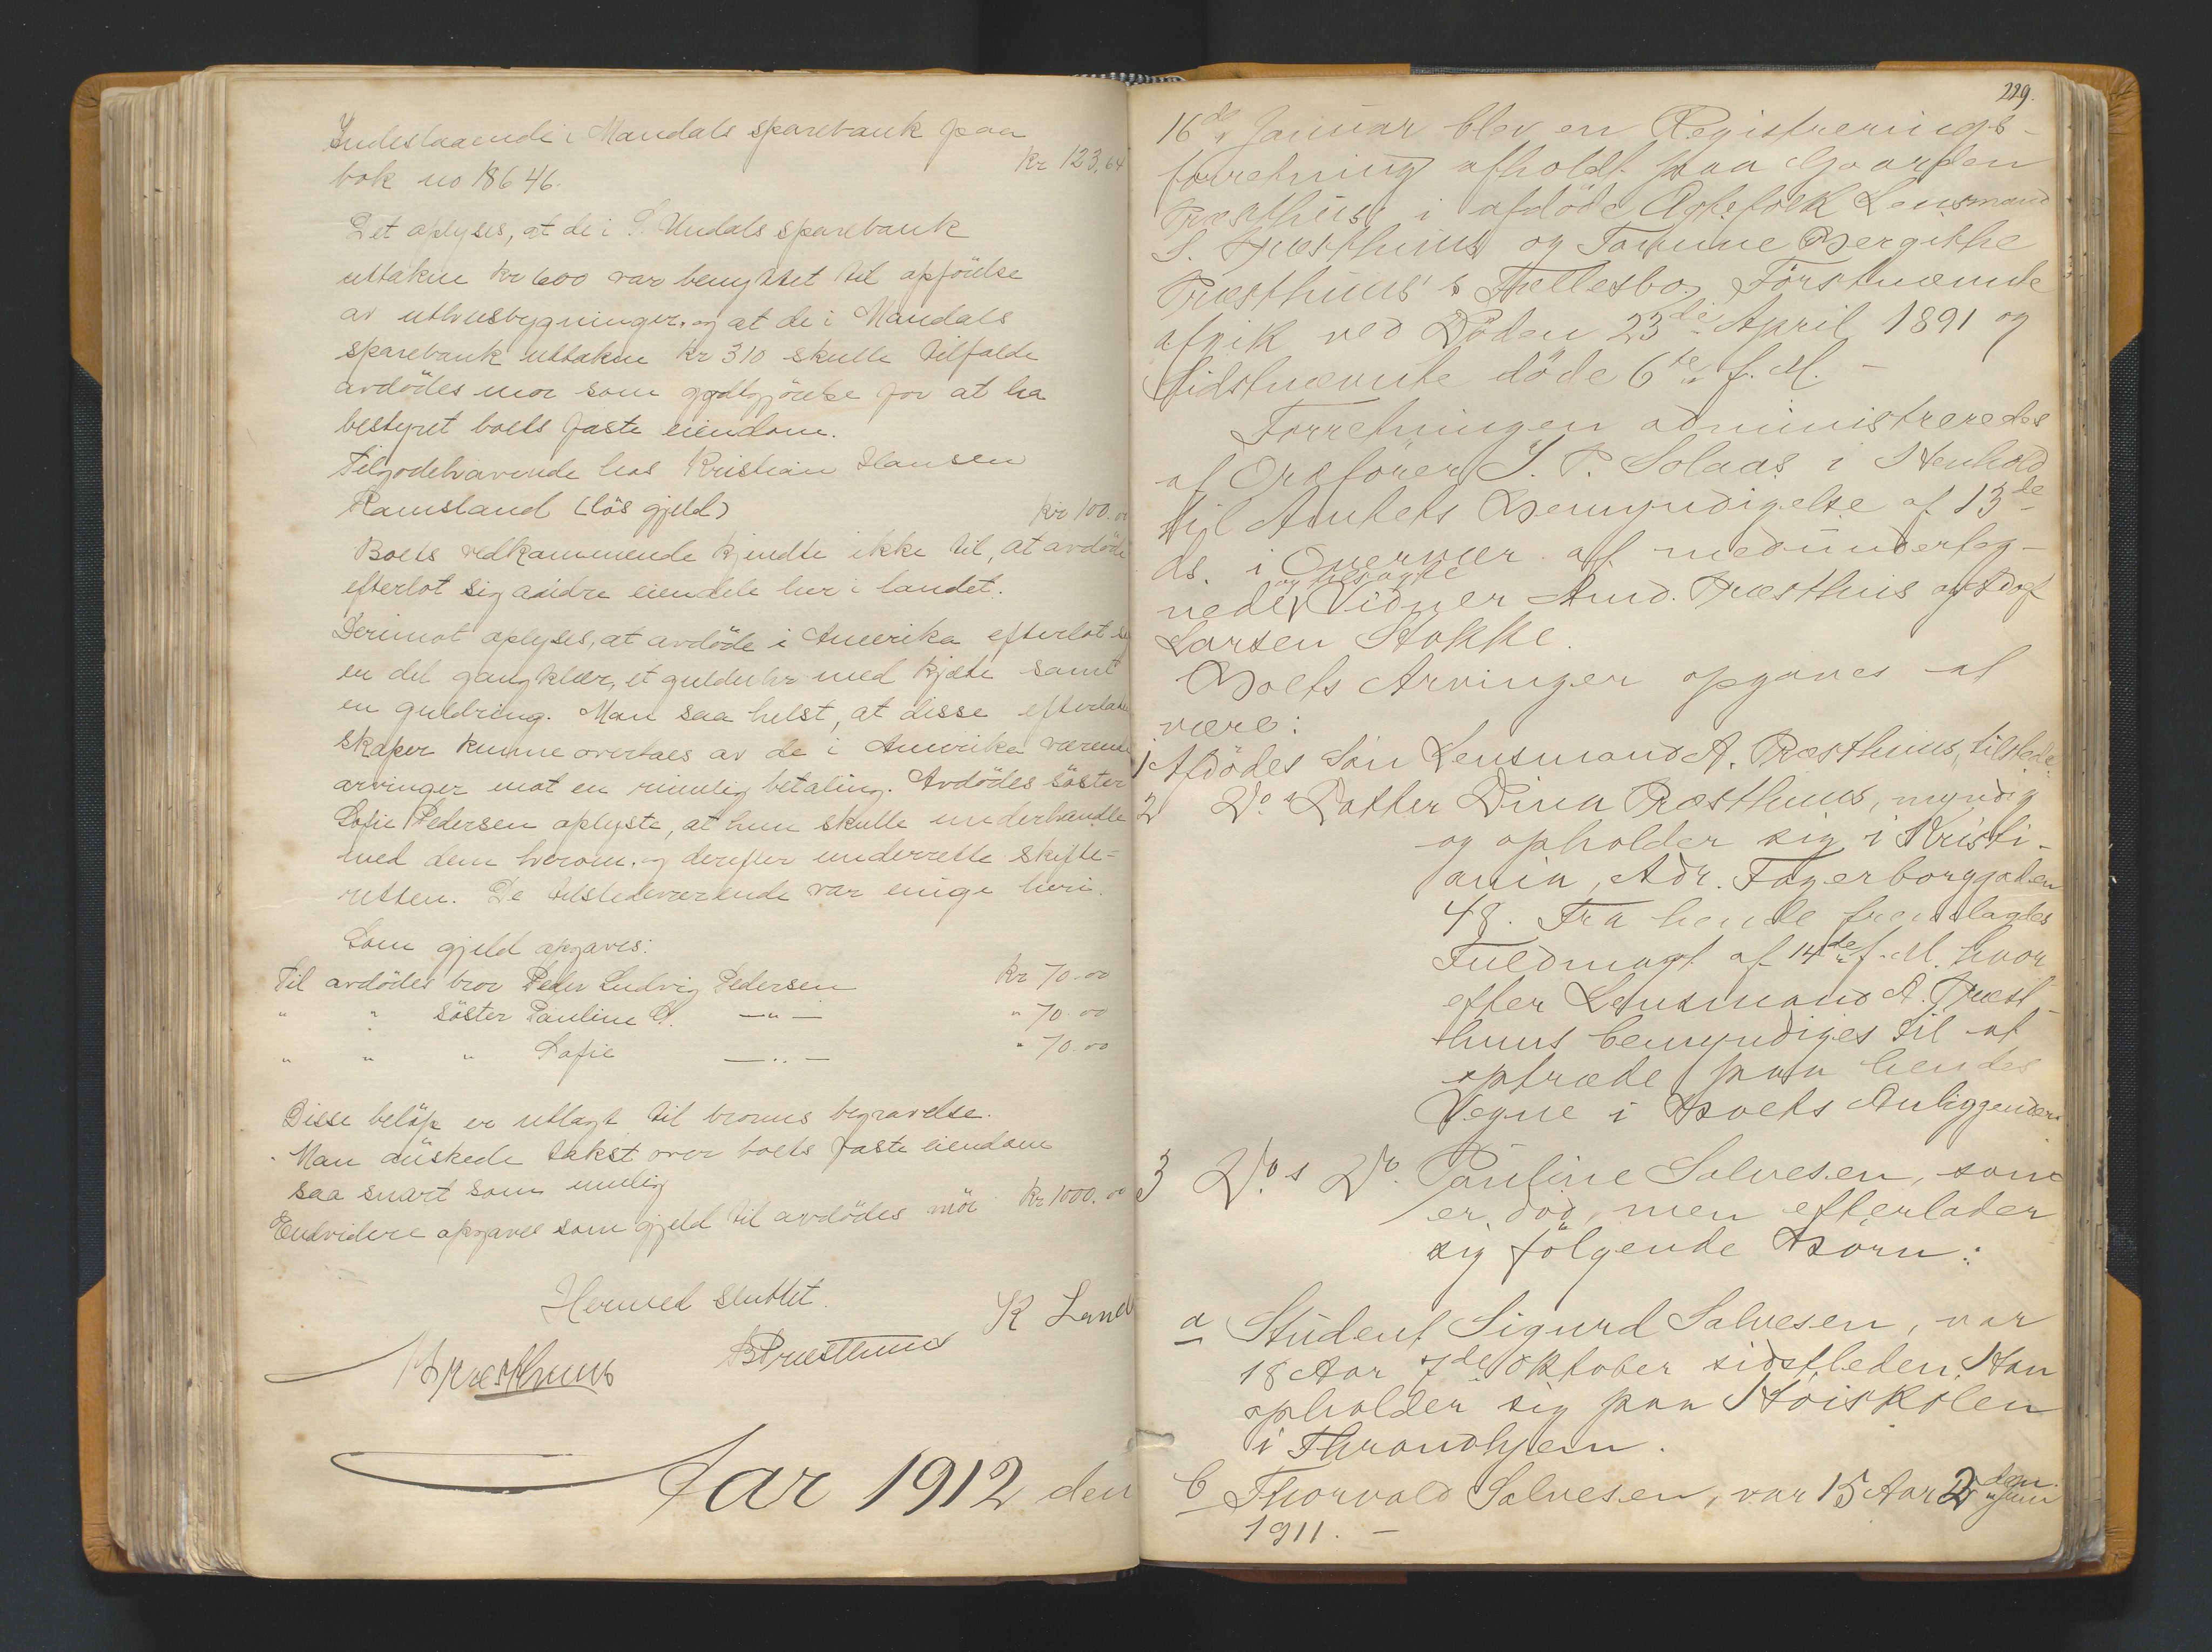 Indestaaende i Mandals sparebank paa
bok no 18646. kr 123,64
Det oplyses, at de i S. Undals sparebank
uttakne kr 600 var benyttet til opförelse
av uthusbygninger, og at de i Mandals
sparebank uttakne kr 310 skulle tilfalde
avdödes mor som godtgjörelse for at ha
bestyret boets faste eiendom.
Tilgodehavende hos Kristian Hansen
Ramsland (lös gjeld) kr 100.00
Boets vedkommende kjendte ikke til, at avdöde
efterlot sig andre eiendele her i landet.
Derimot oplyses, at avdöde i Amerika efterlot
en del gangklær, et guldur med kjæde samt
en guldring. Man saa helst, at disse efterlaten
skaper kunne overtaes av de i Amerika værende
arvinger mot en rimelig betaling. Avdödes söster
Sofie Pedersen oplyste, at hun skulle underhandle
med dem herom, og derefter underrette skifte=
retten. De tilstedeværende var enige heri.
Som gjeld opgaves:
Til avdödes bror Peder Ludvig Pedersen kr 70.00
" " söster Pauline C. —"— " 70.00
" " " Sofie —"— " 70.00
Disse belöp er utlagt til brorens begravelse.
Man önskede takst over boets faste eiendom
saa snart som mulig
Endvidere opgaves som gjeld til avdödes mor kr 1000.00
Hermed sluttet.
K Land
Præsthuus BPræsthuus
Aar 1912 den
229.
16de Januar blev en Registrerings-
forretning afholdt paa Gaarden
Præsthuus i afdöde Ægtefolk Lensmand
S. Præsthuus og Tomine Bergithe
Præsthuus's Fællesbo. Förstnævnte
afgik ved Döden 23de April 1891 og
Sidstnævnte döde 6te f. M. -
Forretningen administreredes
af Ordförer S. P. Solaas i Henhold
til Amtets Bemyndigelse af 13de
ds. i Overvær af medunderteg-
nede og tilsagte Vidner Amd. Præsthus og Adolf
Larsen Stokke.
Boets Arvinger opgaves at
være:
1 Afdödes Sön Lensmand A. Præsthuus, tilstede.
2 Do.s Datter Dina Præsthuus, myndig
og opholder sig i Kristi-
ania, Adr. Fagerborggaden
48. Fra hende fremlagdes
Fuldmagt af 14de f. M. hvor-
efter Lensmand A. Præst-
huus bemyndiges til at
optræde paa hendes
Vegne i Boets Anliggender.
3 Do.s Do. Pauline Salvesen, som
er död, men efterlader
sig fölgende Börn:
a Student Sigurd Salvesen, var
18 Aar 7de Oktober sidstleden. Han
opholder sig paa Höiskolen
i Throndhjem.
b Thorvald Salvesen, var 15 Aar 2den Juni
1911. -